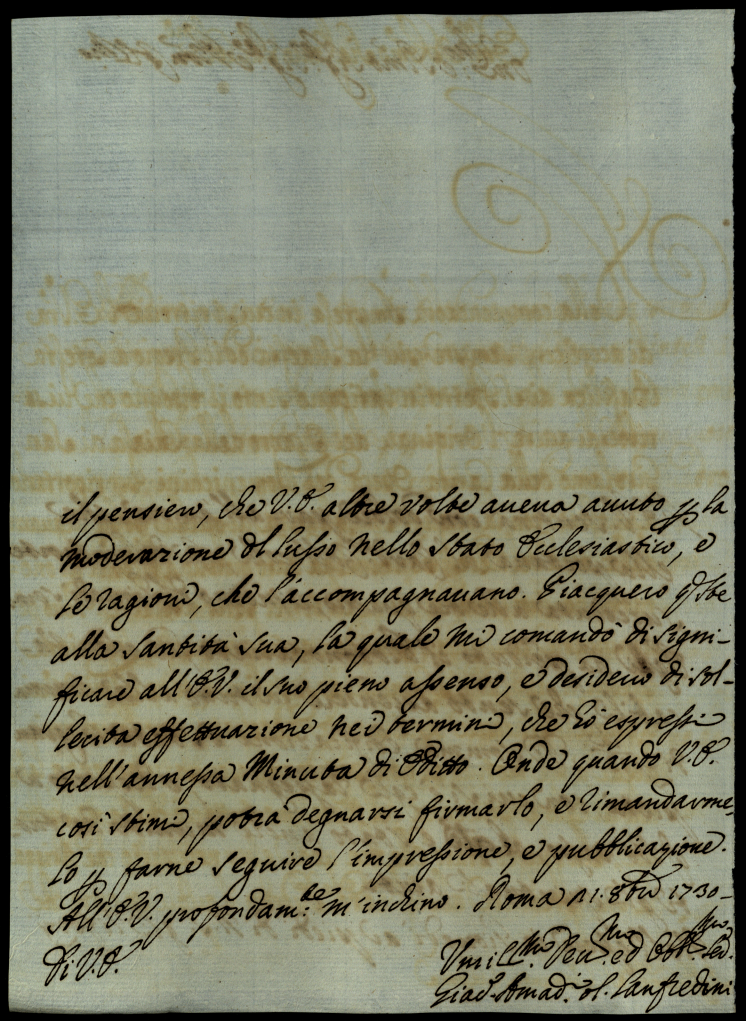 il pensiero, che V. E. altre volte aveva avuto p la
moderazione dl lusso nello stato Ecclesiastico, e
le ragioni, che l'accompagnavano. Piacquero qste
alla santità sua, la quale mi comandò di signi-
ficare all'E. V. il suo pieno assenso, e desiderio di sol-
lecita effettuazione nei termini, che hò espressi
nell'annessa Minuta di Editto. Onde quando V. E.
così stimi, potrà degnarsi firmarlo, e rimandarme-
lo p farne seguire l'impressione, e pubblicazione.
All'E. V. profondam.te m'inchino. Roma 8bre 1730-
Di V. E.
Umill.mo Dev.mo ed Obb.mo
Giac. Amad. Lanfredini